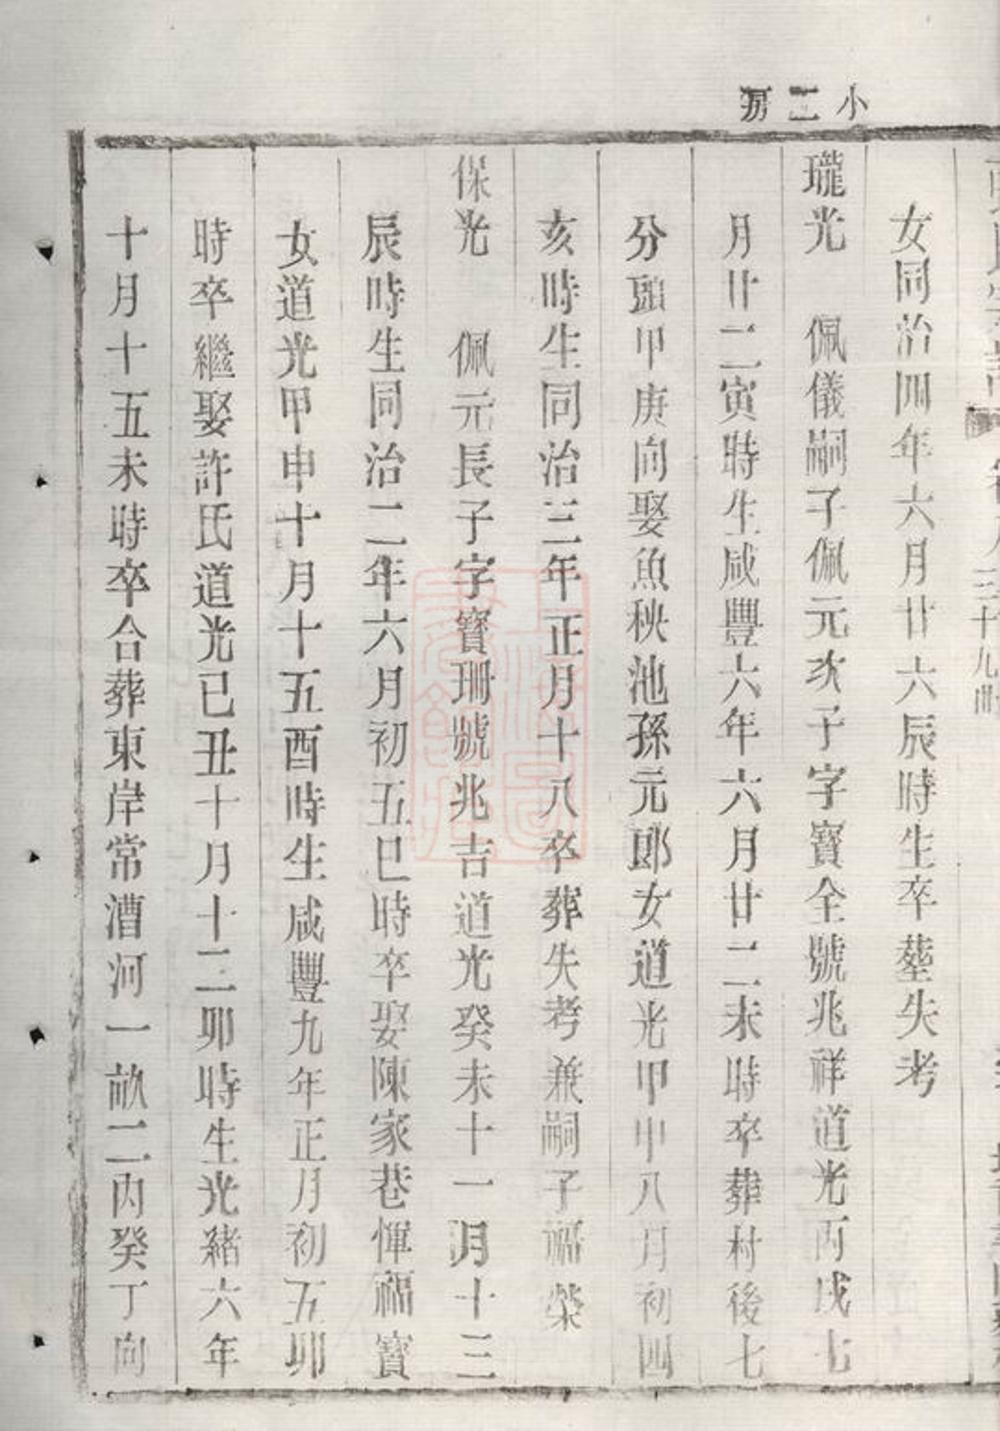 小二房
女同治四年六月廿六辰時生卒塟失考
瓏光　佩儀嗣子佩元次子字寶全號兆祥道光丙戌七
月廿二寅時生咸豐六年六月廿二未時卒葬村後七
分頭甲庚向娶魚秧池孫元郎女道光甲申八月初四
亥時生同治三年正月十八卒葬失考兼嗣子福榮
保光　佩元長子字寶珊號兆吉道光癸未十一月十三
辰時生同治二年六月初五巳時卒娶陳家巷惲福寶
女道光甲申十月十五酉時生咸豐九年正月初五卯
時卒繼娶許氏道光己丑十月十二卯時生光緒六年
十月十五未時卒合葬東岸常漕河一畝二丙癸丁向